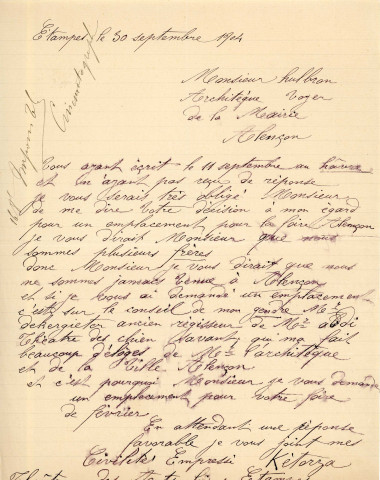 Étampes le 30 septembre 1904
Monsieur hulbron
Architèque Voyer
de la Mairie
Alençon
Vous ayant écrit le 11 septembre au
et en ayant pas reçu de réponse
je vous serait très obligé Monsieur
de me dire votre décision à mon égard
pour un emplacement pour la foire Alençon
je vous dirait Monsieur que nous
sommes plusieurs frères
donc Monsieur je vous dirait que nous
ne sommes jamais venue à Alençon
et si je vous ai demandé un emplacement
c'est sur le conseil de mon gendre Mr
ancien régisseur de Mr
Théâtre des chien Savant qui ma fait
beaucoup d'éloges de Mr l'architèque
et de la Ville Alençon
et c'est pourquoi Monsieur je vous demande
un emplacement pour votre foire
de février
En attendant une réponse
favorable je vous joint mes
Civilités Empressé Kétorza
Cinématographe
Impérial